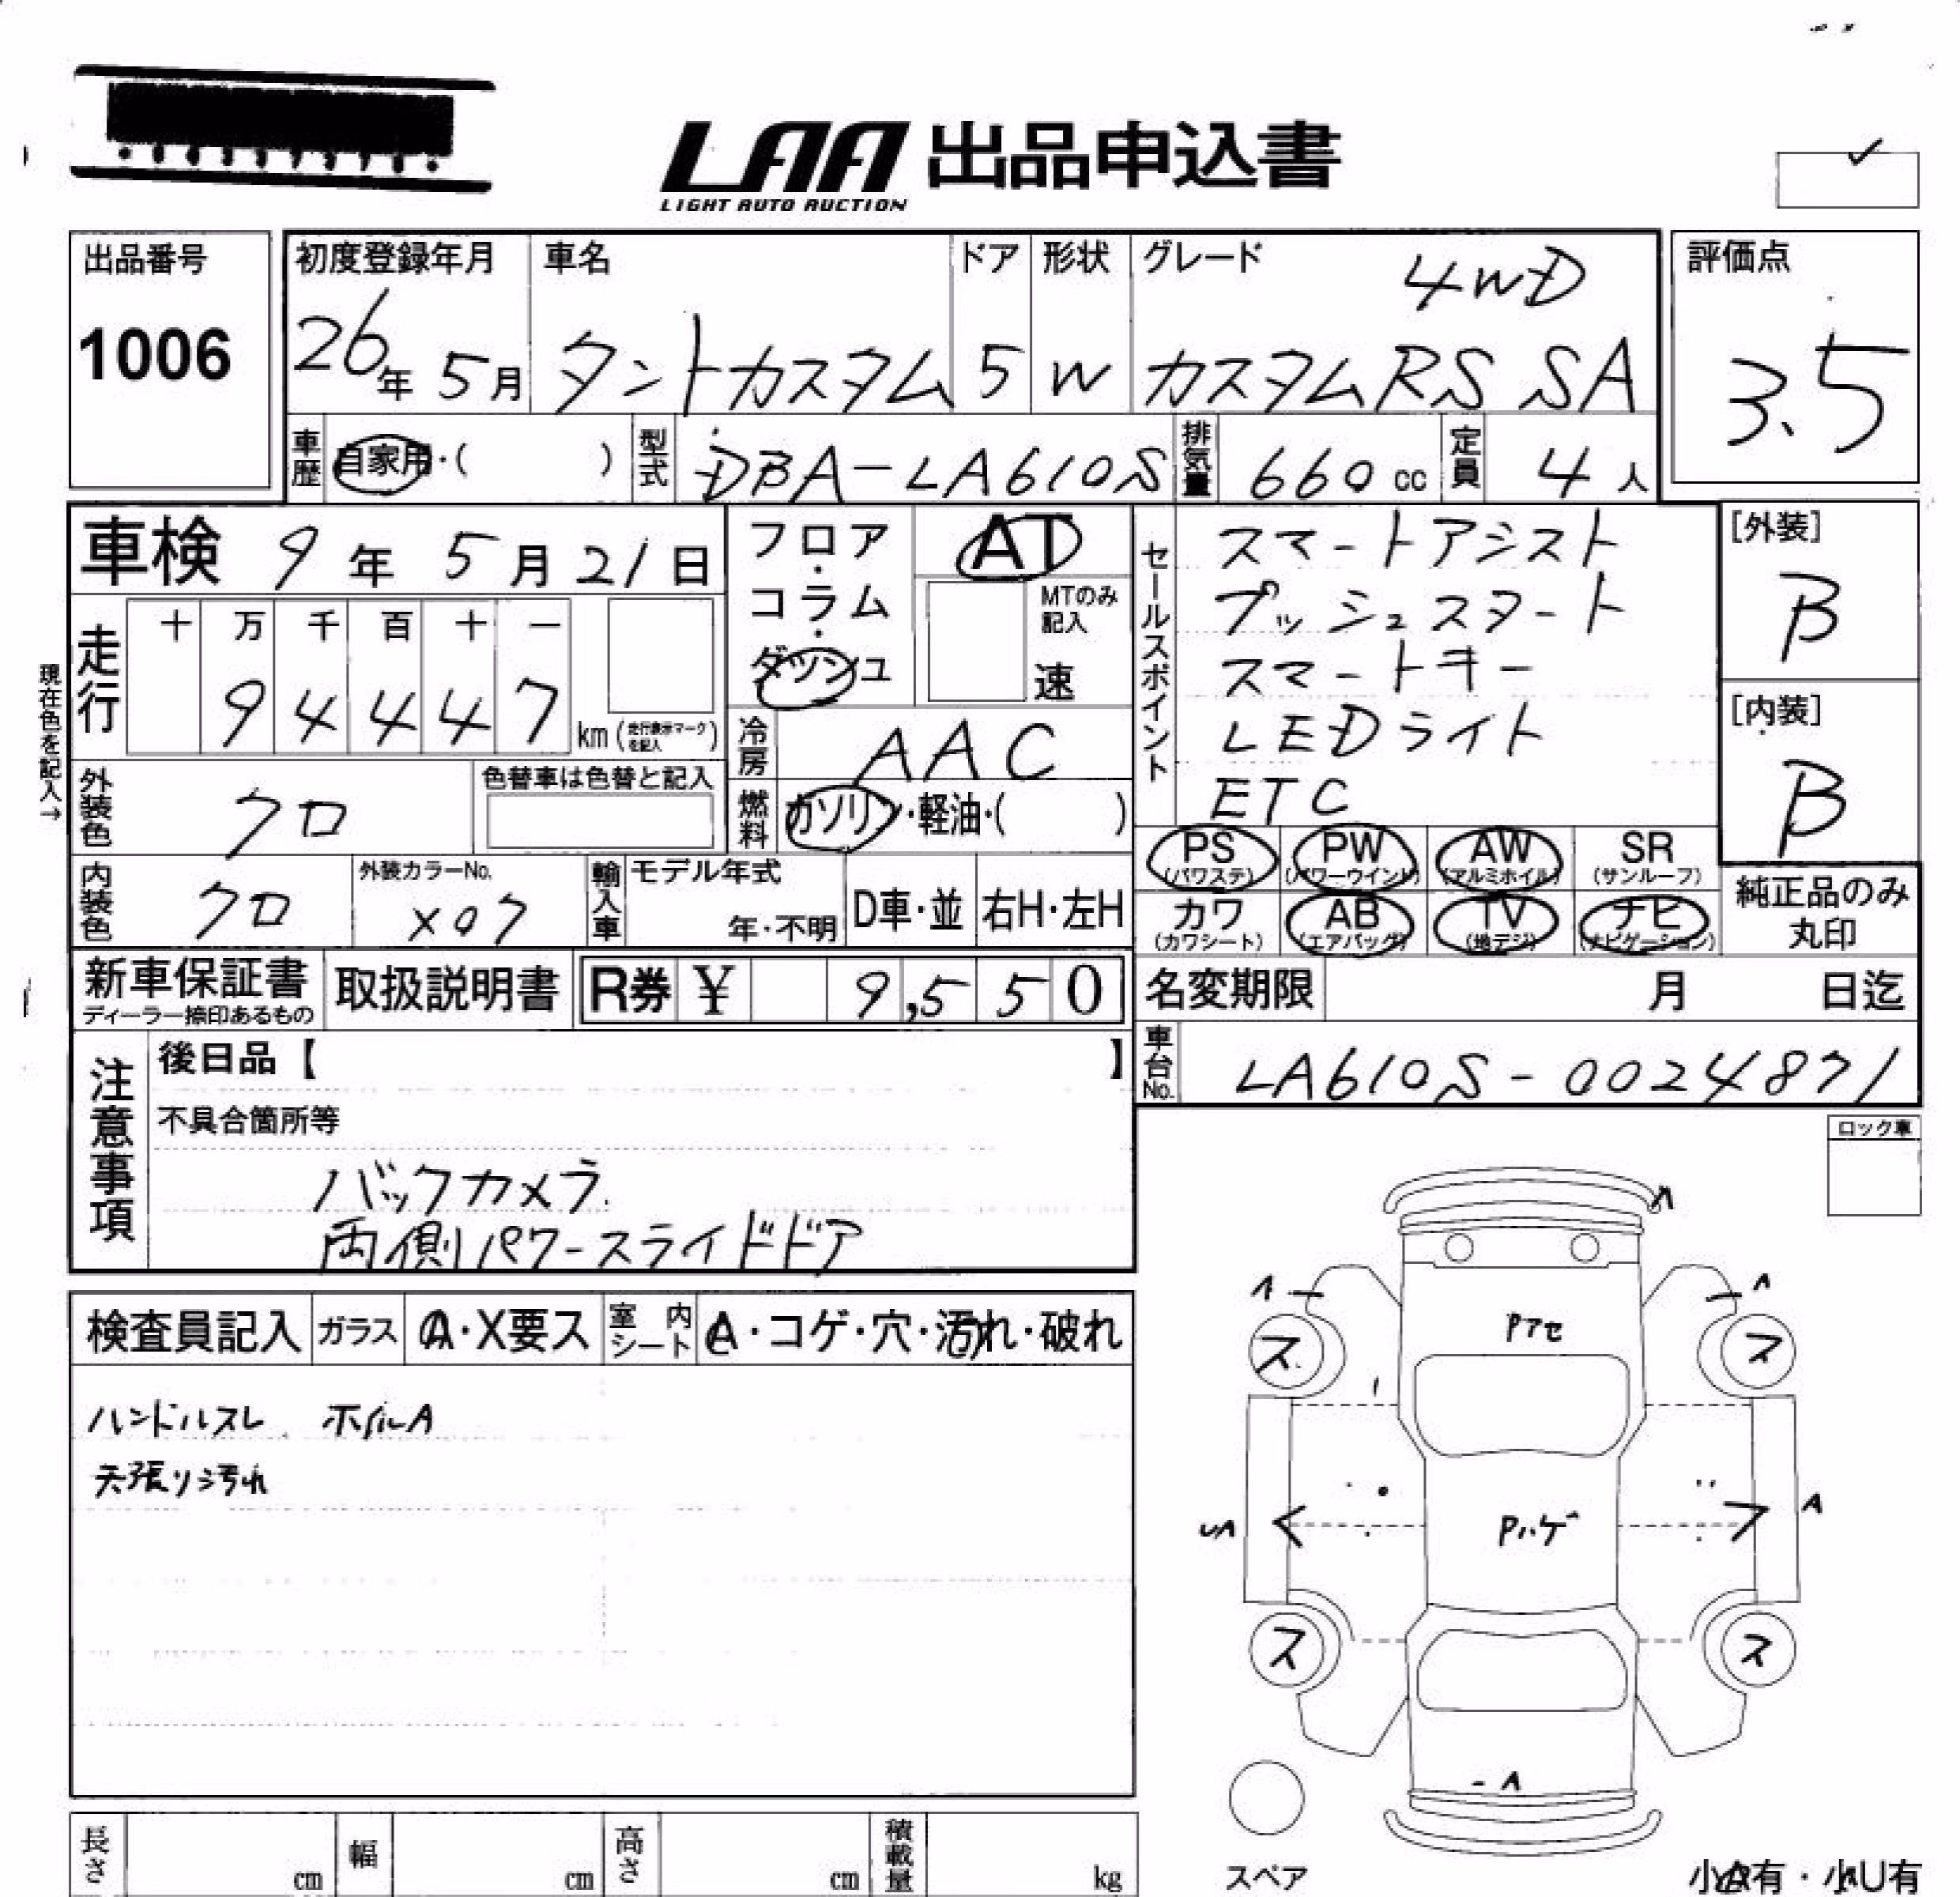 LAA 出品申込書
LIGHT AUTO AUCTION
出品番号
1006
初度登録年月
26年 5月
車名
タントカスタム
ドア
5
形状
W
グレード
4WD
カスタムRS SA
評価点
3.5
車歴
自家用・( )
型式
DBA-LA610S
排気量
660 cc
定員
4人
車検 9年 5月 21日
フロア・コラム・ダッシュ
AT
MTのみ記入
速
セールスポイント
スマートアシスト
プッシュスタート
スマートキー
LEDライト
ETC
[外装]
B
[内装]
B
現在色を記入→
走行
十 万 千 百 十 一
9 4 4 4 7
km(走行表示マークを記入)
冷房
AAC
外装色
クロ
色替車は色替と記入
燃料
ガソリン・軽油・( )
PS (パワステ)
PW (パワーウインド)
AW (アルミホイル)
SR (サンルーフ)
内装色
クロ
外装カラーNo.
X07
輸入車
モデル年式
年・不明
D車・並
右H・左H
カワ (カワシート)
AB (エアバッグ)
TV (地デジ)
ナビ (ナビゲーション)
純正品のみ丸印
新車保証書
ディーラー捺印あるもの
取扱説明書
R券 ¥ 9,550
名変期限 月 日迄
注意事項
後日品【 】
不具合箇所等
バックカメラ
両側パワースライドドア
車台No.
LA610S-0024871
ロック車
検査員記入
ガラス
A・X要ス
室内シート
A・コゲ・穴・汚れ・破れ
ハンドルスレ ホイルA
天張り汚れ
A
A
A
ス
Pアセ
ス
UA
Pハゲ
A
ス
ス
-A
スペア
小A有・小U有
長さ cm
幅 cm
高さ cm
積載量 kg